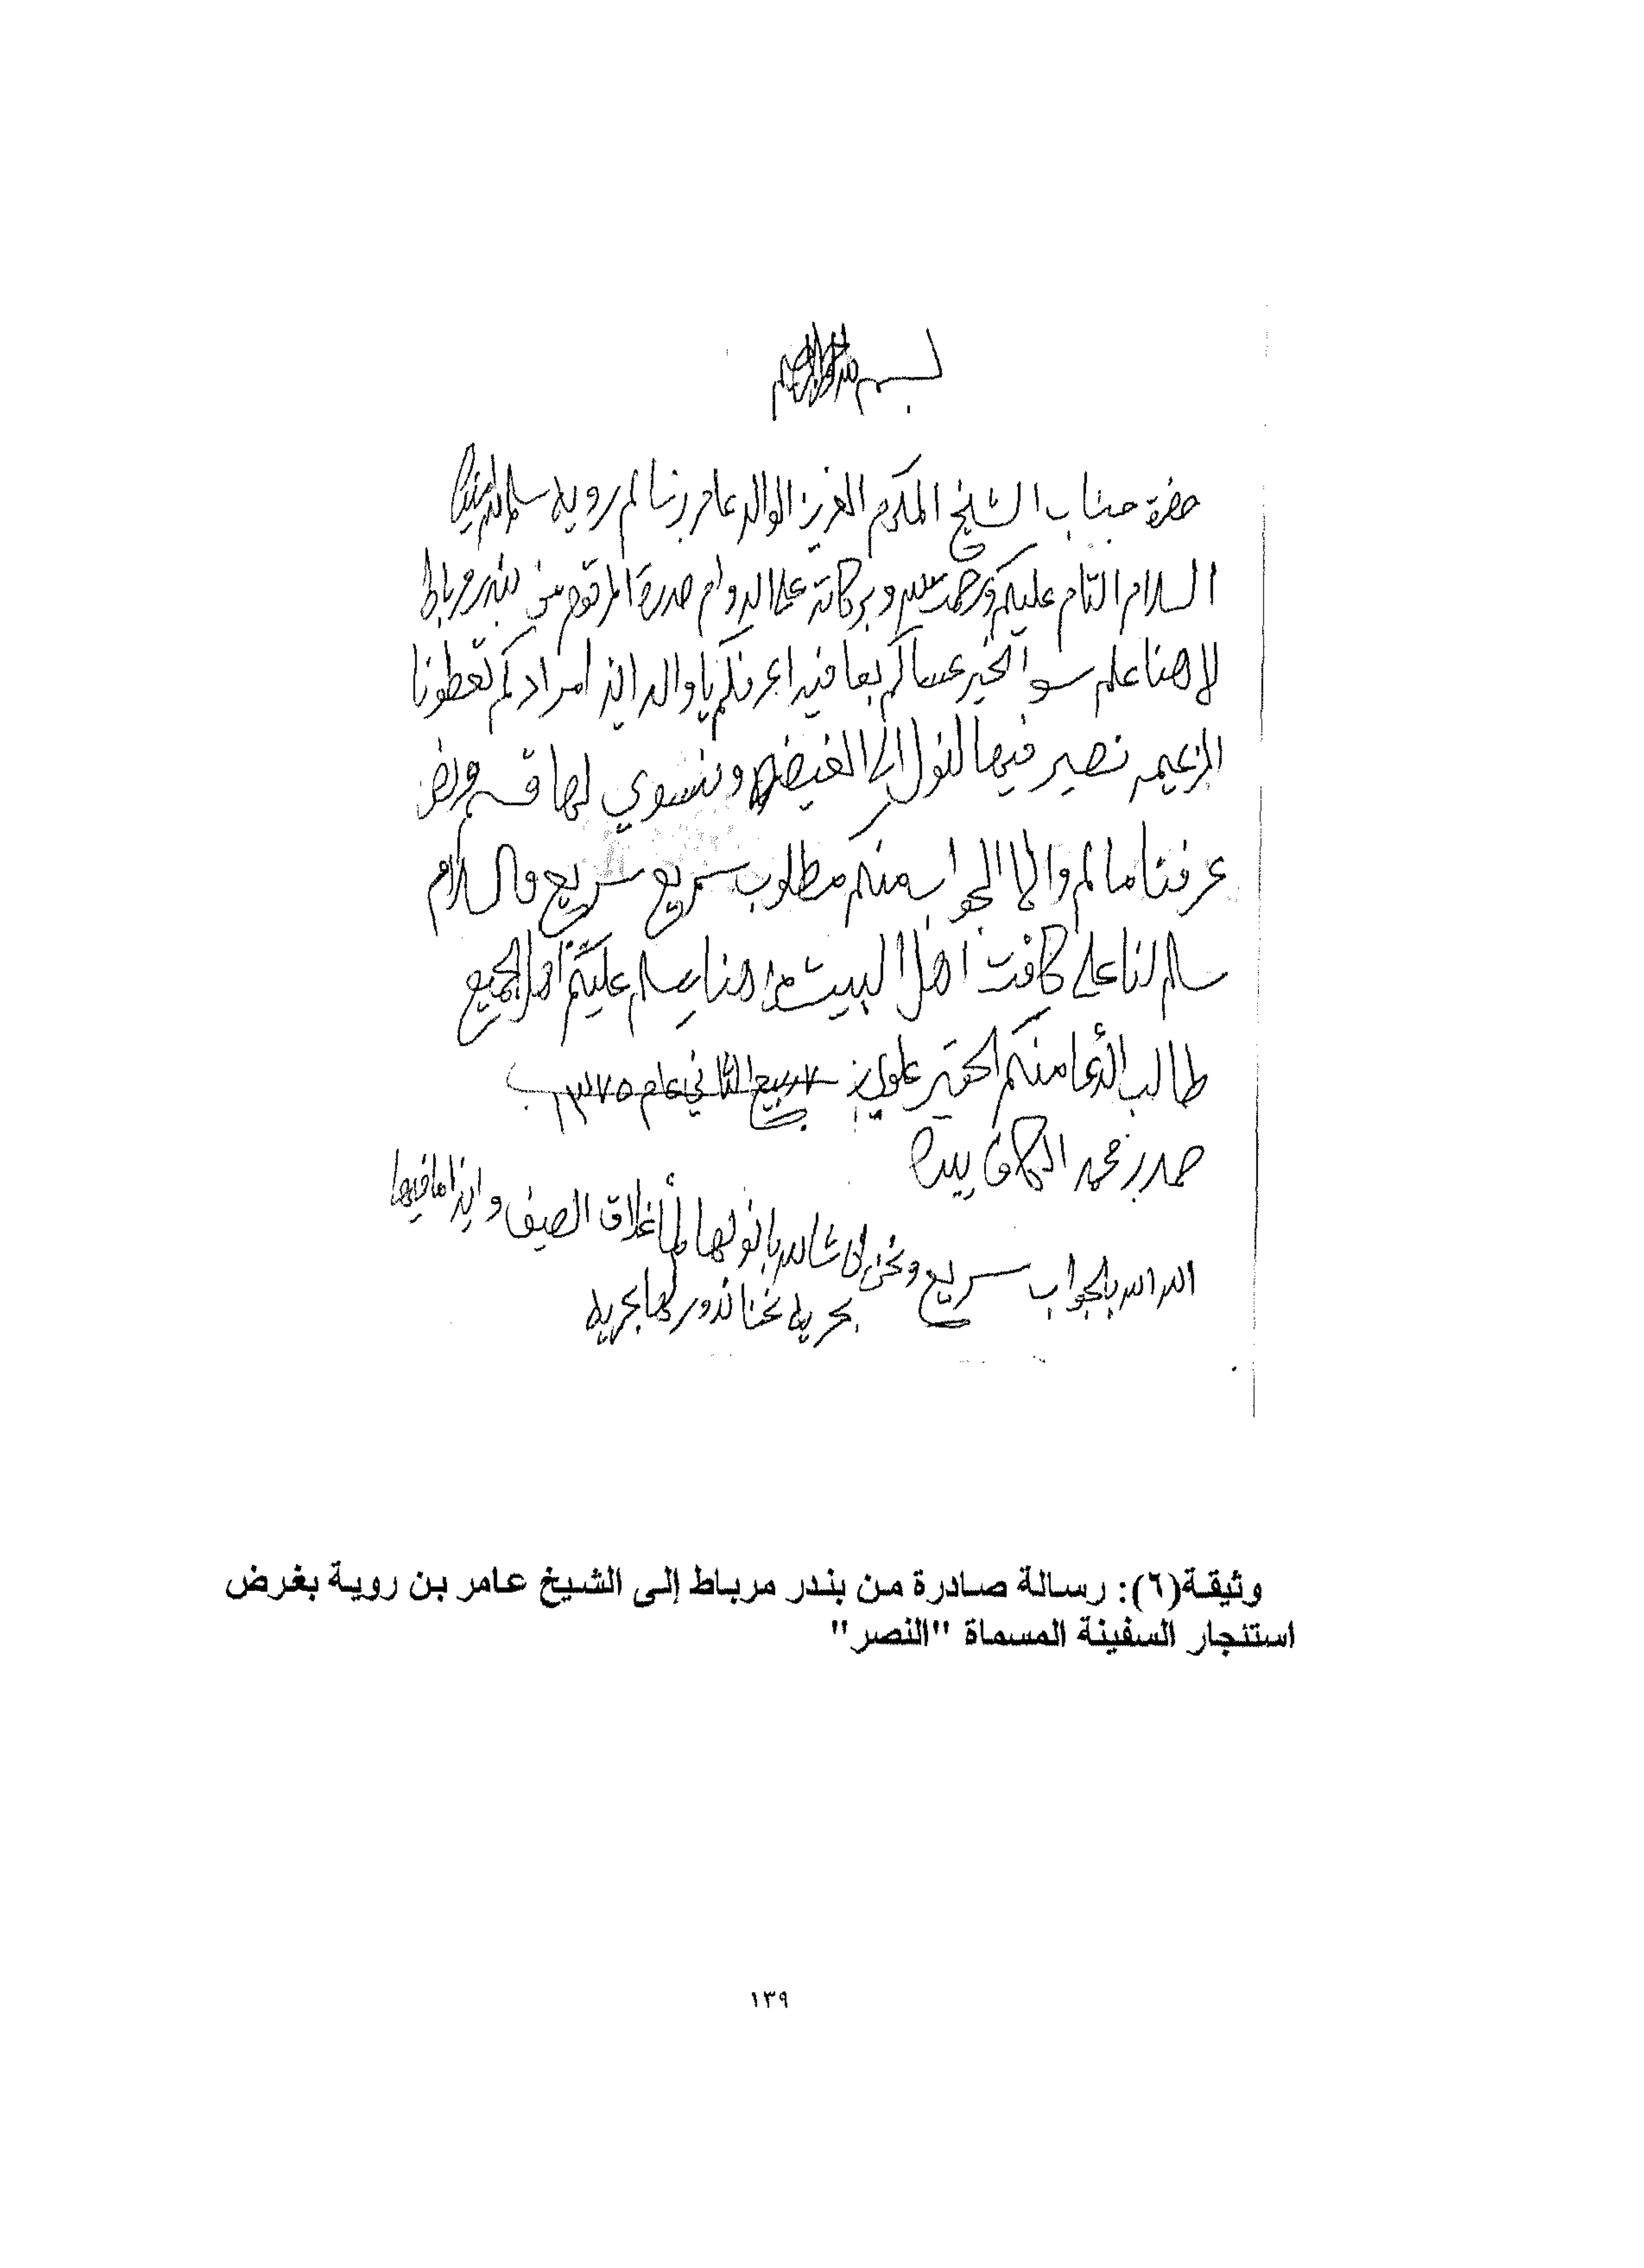 بسم الله الرحمن الرحيم
حضرة جناب الشيخ المكرم العزيز الوالد عامر بن سالم رويه سلمه الله
السلام التام عليكم ورحمت الله وبركاته على الدوام صدرة المرقوم من بندر مرباط
لا هنا علم سوا الخير عساكم بعافيه اعرفكم يا والد اذا مرادكم تعطونا
الزعيمه نصير فيها لنول الى الغيضه ونسوي لها
عرفنا سالم والا الجواب منكم مطلوب سريع سريع والسلام
سلم لنا على كافت اهل البيت هنا يسلم عليكم الجميع
طالب الدعا منكم الحقير علوي بن ٧ ربيع الثاني عام ١٣٧٥
محمد الكاف بيده
الله الله بالجواب سريع ونحن ان شالله بانولها لما اغلاق الصيف واذا ما فيها
بحريه نحنا ندور لها بحريه
وثيقة(٦): رسالة صادرة من بندر مرباط إلى الشيخ عامر بن روية بغرض
استئجار السفينة المسماة "النصر"
١٣٩